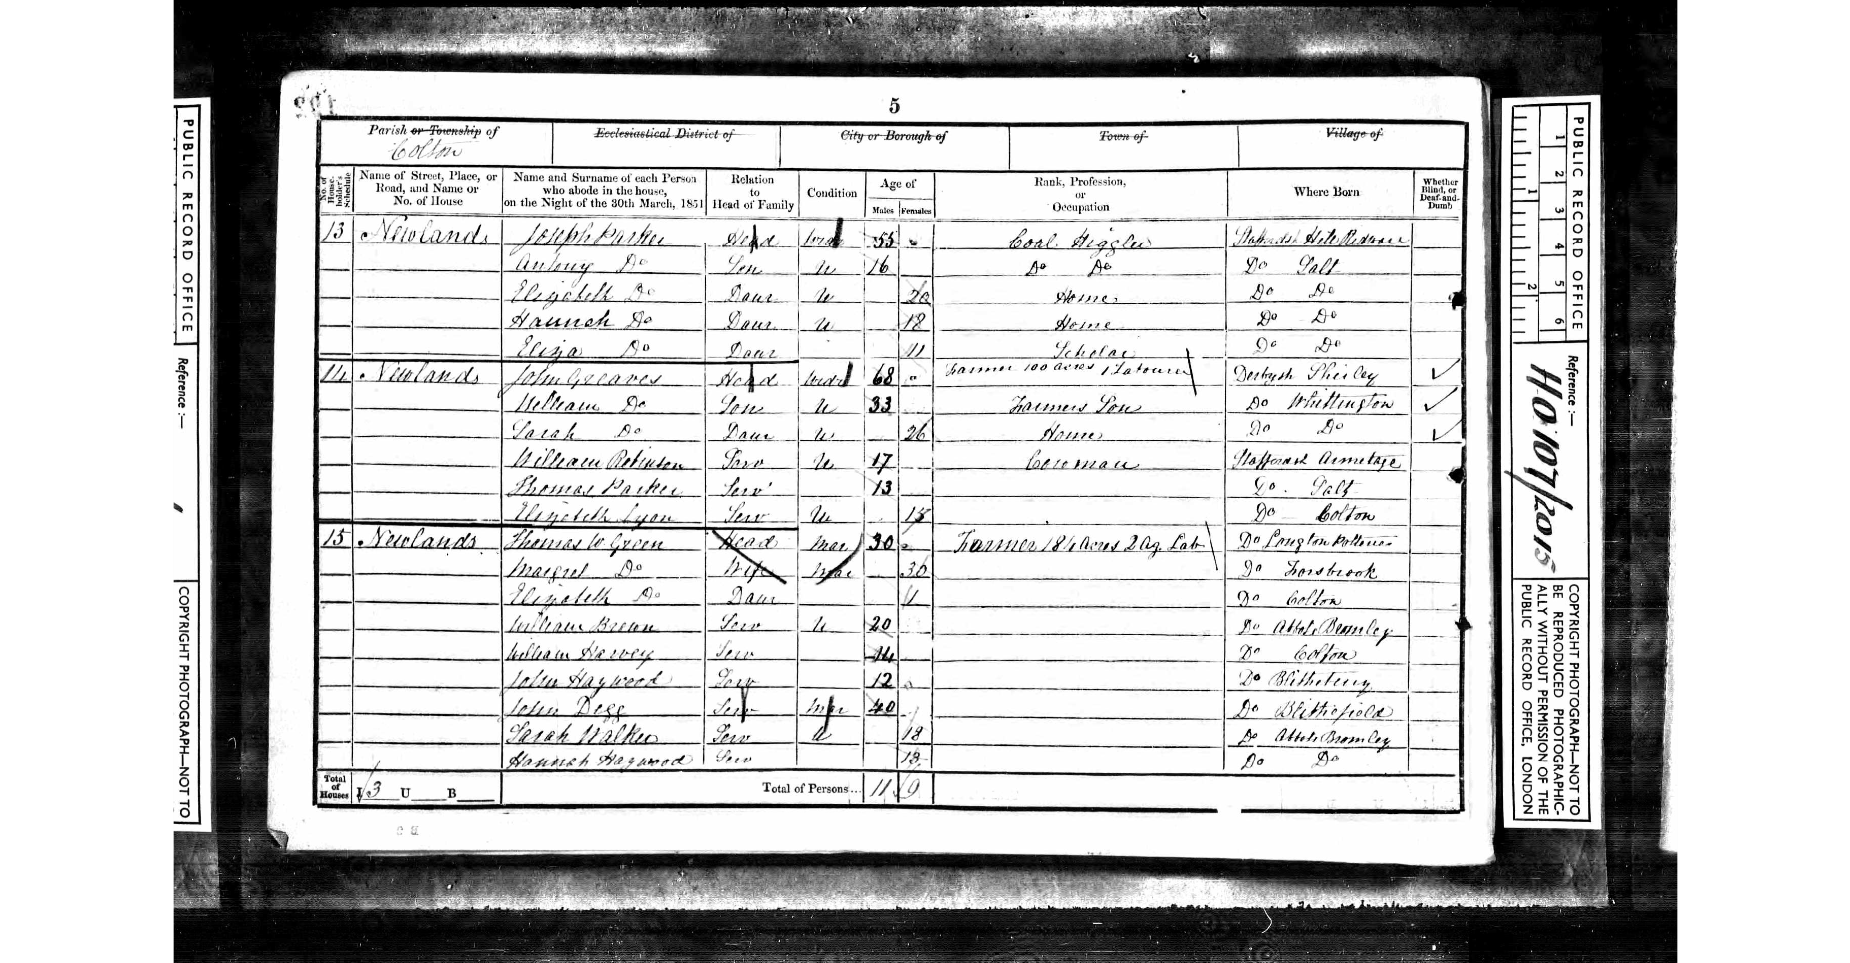 5
Parish or Township of Colton
Ecclesiastical District of
City or Borough of
Town of
Village of
No. of House-holder's Schedule
Name of Street, Place, or Road, and Name or No. of House
Name and Surname of each Person who abode in the house, on the Night of the 30th March, 1851
Relation to Head of Family
Condition
Age of Males Females
Rank, Profession, or Occupation
Where Born
Whether Blind, or Deaf-and-Dumb
13 Newlands Joseph Parker Head Widr 55 Coal Higgler Staffordsh Redware
Antony Do Son U 16 Do Do Do Salt
Elizabeth Do Daur U 20 Home Do Do
Hannah Do Daur U 18 Home Do Do
Eliza Do Daur 11 Scholar Do Do
14 Newlands John Greaves Head Widr 68 Farmer 100 acres 1 Labourer Derbysh Shirley
William Do Son U 33 Farmers Son Do Whittington
Sarah Do Daur U 26 Home Do Do
William Robinson Serv U 17 Cowman Staffordsh Armitage
Thomas Parker Serv 13 Do Salt
Elizabeth Lyon Serv U Do Colton
15 Newlands Thomas W Green Head Mar 30 Farmer Acres 2 Ag. Lab Do Langton Potteries
Margret Do Wife Mar 30 Do Forsbrook
Elizabeth Do Daur Do Colton
William Brown Serv U 20 Do Abbots Bromley
William Harvey Serv 14 Do Colton
John Haywood Serv 12 Do
John Degg Serv Mar 40 Do Blithefield
Sarah Walker Serv U 18 Do Abbots Bromley
Hannah Haywood Serv 13 Do Do
Total of Houses I 3 U B Total of Persons... 11 9
PUBLIC RECORD OFFICE
Reference :—
COPYRIGHT PHOTOGRAPH—NOT TO
PUBLIC RECORD OFFICE
1 2 3 4 5 6
1 2
Reference :—
HO 107/2015
COPYRIGHT PHOTOGRAPH—NOT TO
BE REPRODUCED PHOTOGRAPHIC-
ALLY WITHOUT PERMISSION OF THE
PUBLIC RECORD OFFICE, LONDON